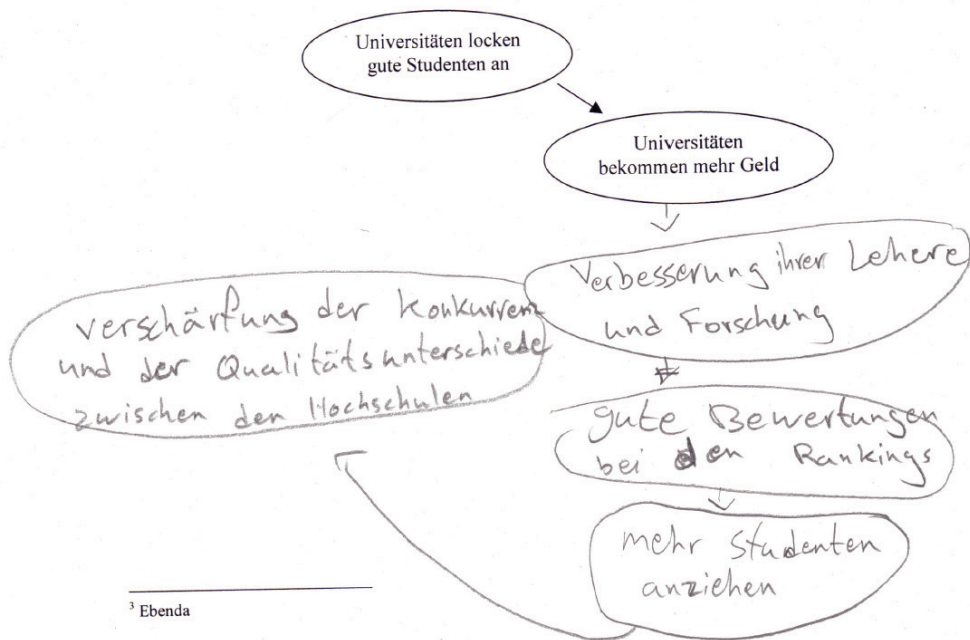 Universitäten locken
gute Studenten an
Universitäten
bekommen mehr Geld
Verbesserung ihrer Lehere
und Forschung
gute Bewertungen
bei den Rankings
mehr Studenten
anziehen
verschärfung der Konkurrenz
und der Qualitätsunterschiede
zwischen den Hochschulen
³ Ebenda